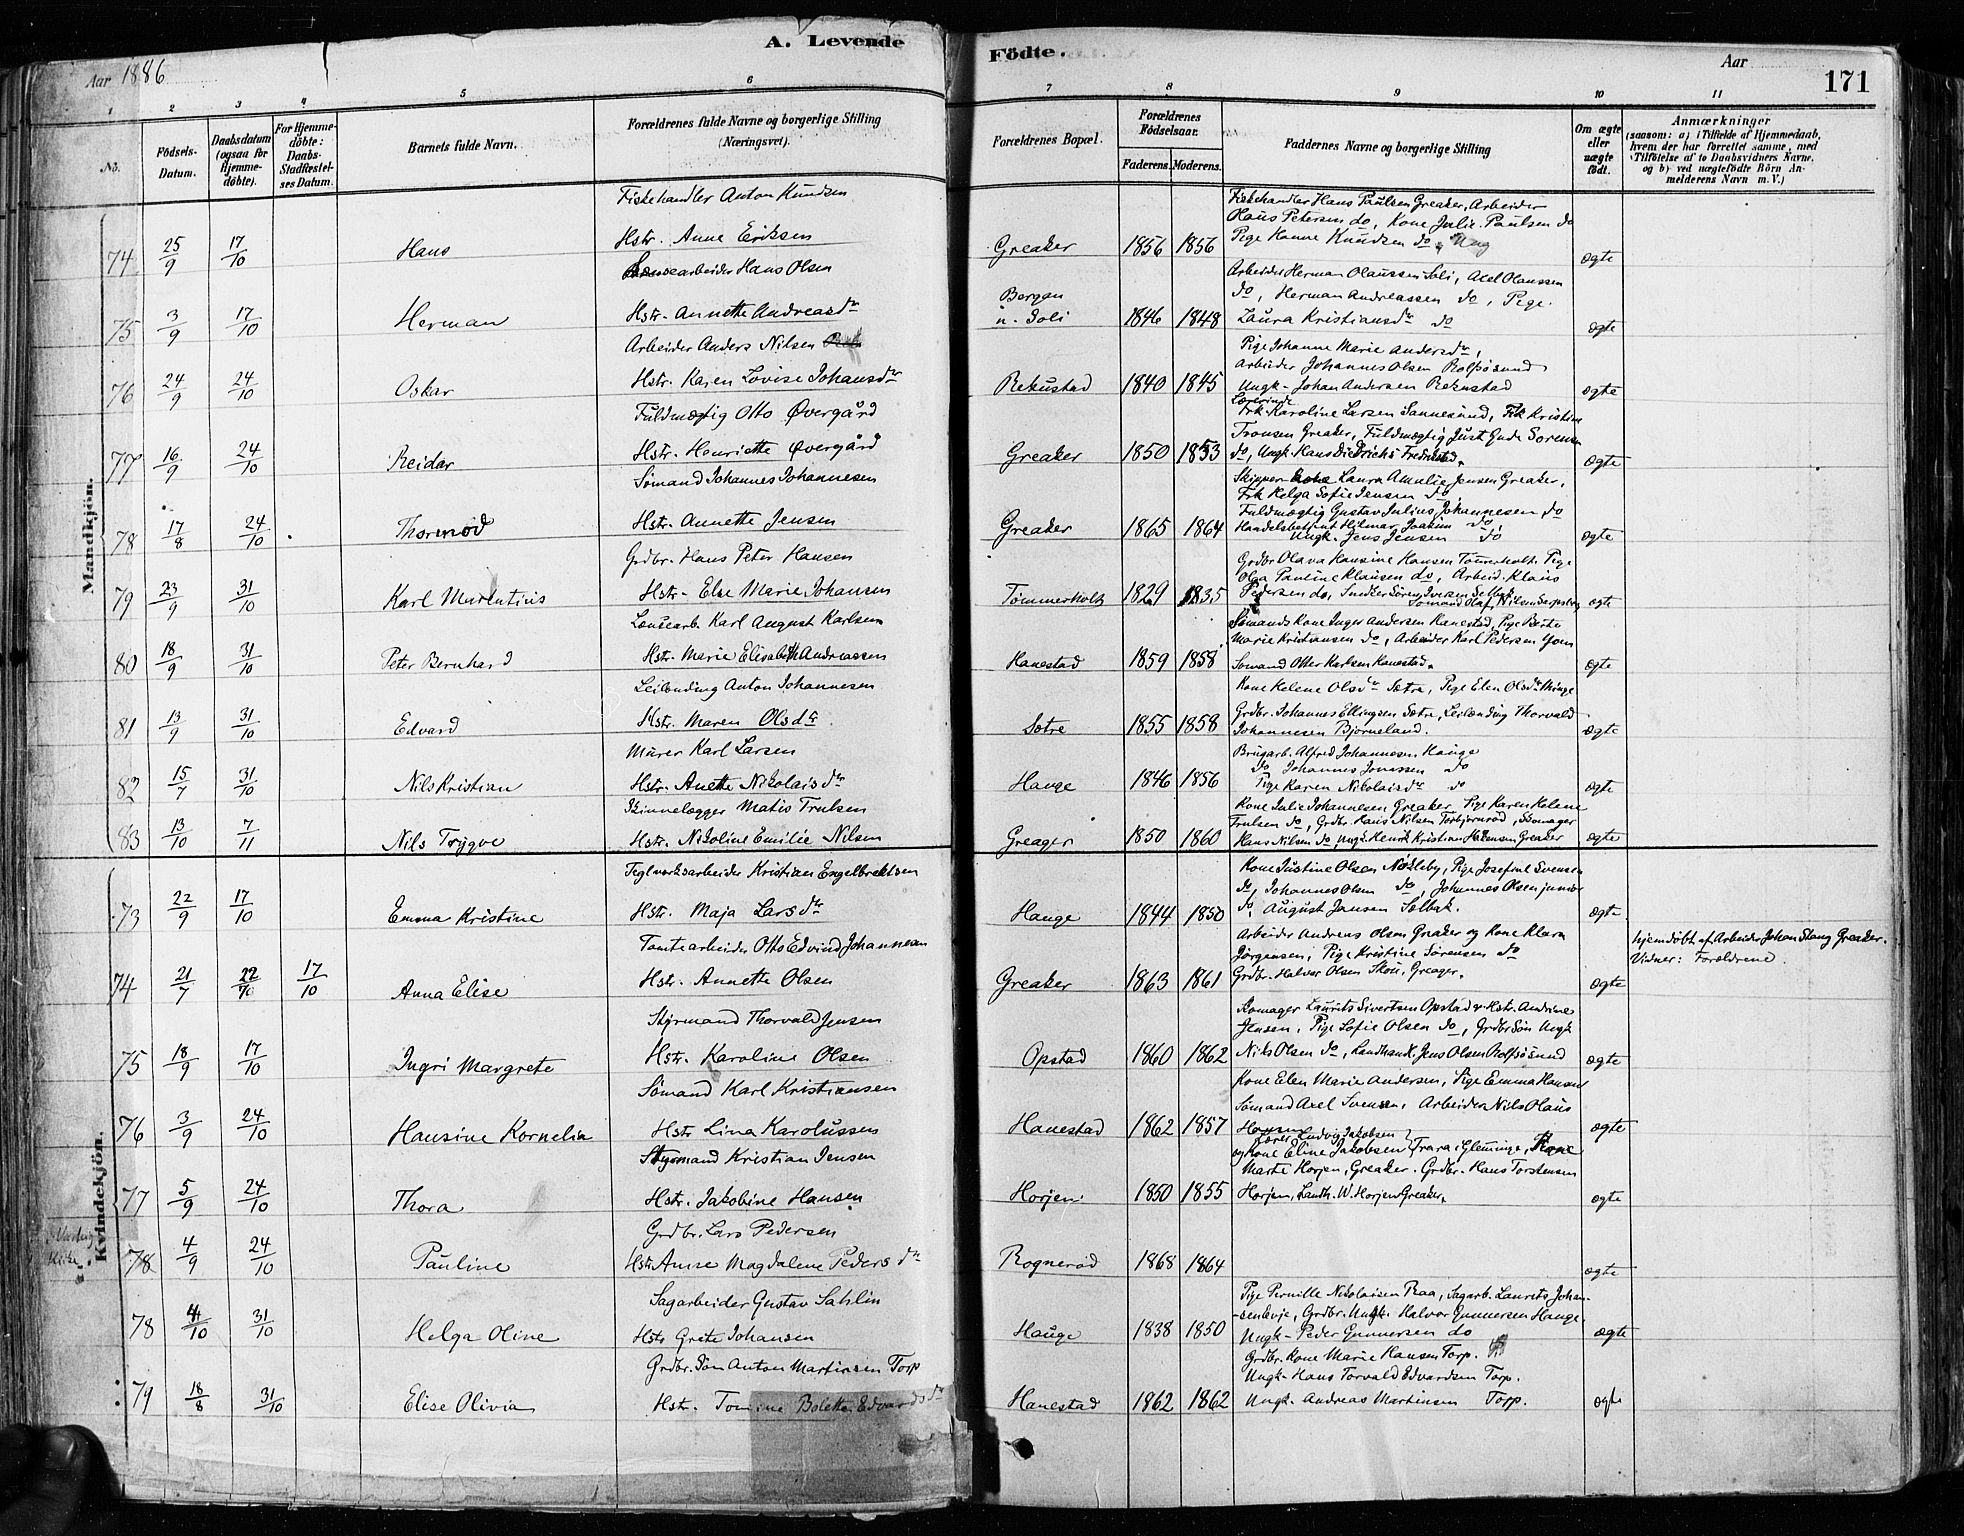 A. Levende Födte.
Aar 1886
Aar 171
1 2 3 4 5 6 7 8 9 10 11
No.
Födsels-Datum.
Daabsdatum (ogsaa for Hjemme-döbte).
For Hjemme-döbte: Daabs-Stadfæstel-ses Datum.
Barnets fulde Navn.
Forældrenes fulde Navne og borgerlige Stilling (Næringsvei).
Forældrenes Bopæl.
Forældrenes Födselsaar.
Faderens. Moderens.
Faddernes Navne og borgerlige Stilling
Om ægte eller uægte födt.
Anmærkninger
(saasom: a) i Tilfælde af Hjemmedaab,
hvem der har forrettet samme, med
Tilföielse af to Daabsvidners Navne,
og b) ved uægtefödte Börn An-
melderens Navn m. V.)
Mandkjön.
Fiskehandler Anton Knudsen
Fiskehandler Hans Paulsen Greaker, Arbeider
Olaus Petersen do, Kone Julie Paulsen do
74 25/9 17/10 Hans Hstr. Anne Eriksen Greaker 1856 1856 Pige Hanne Knudsen do, Ung ægte
Lænsearbeider Hans Olsen
Arbeider Herman Olaussen Soli, Axel Olaussen
do, Herman Andreassen do, Pige
75 3/9 17/10 Herman Hstr. Annette Andreasdr Bergan u. Soli 1846 1848 Laura Kristiansdr do ægte
Arbeider Anders Nilsen
Pige Johanne Marie Andersdr,
Arbeider Johannes Olsen Rolfsösund
76 24/9 24/10 Oskar Hstr. Karen Lovise Johansdr Rekustad 1840 1845 Ungk. Johan Andersen Rekustad ægte
Fuldmægtig Otto Övergård
Lærerinde
Frk. Karoline Larsen Sannesund, Frk Kristine
Tronsen Greaker, Fuldmægtig Just Gude Sorensen
77 16/9 24/10 Reidar Hstr. Henriette Övergård Greaker 1850 1853 do, Ungk. Hans Diedrichs Fredrikstad, ægte
Sömand Johannes Johannesen
Skipper kone Laura Amalie Jensen Greaker,
Frk Helga Sofie Jensen do,
Fuldmægtig Gustav Julius Johannesen do
78 17/8 24/10 Thormod Hstr. Annette Jensen Greaker 1865 1864 Handelsbetjent Hilmar Joakim do, ægte
Ungk. Jens Jensen do
Grdbr. Hans Peter Hansen
Grdbr Olava Hansine Hansen Tömmerholt. Pige
Olga Pauline Klausen do, Arbeid. Klaus
79 23/9 31/10 Karl Marentius Hstr. Else Marie Johansen Tömmerholt 1829 1835 Pedersen do, Snedker Sören Iversen Selbak ægte
Sömand Olaf Nilsen Sarpsborg
Lænsearb. Karl August Karlsen
Sömands Kone Inger Andersen Hanestad, Pige Berte
Marie Kristiansen do, Arbeider Karl Pedersen Yven
80 18/9 31/10 Peter Bernhard Hstr. Marie Elisabeth Andreassen Hanestad 1859 1858 Sömand Otter Karlsen Hanestad. ægte
Leilending Anton Johannesen
Kone Helene Olsdr Sætre, Pige Elen Olsdr Minge
Grdbr. Johannes Ellingsen Sætre, Leilending Thorvald
81 13/9 31/10 Edvard Hstr. Maren Olsdr Sætre 1855 1858 Johannesen Björneland. ægte
Murer Karl Larsen
Brugarb. Alfred Johannesen Hauge
do Johannes Jonassen do
82 15/7 31/10 Nils Kristian Hstr. Anette Nikolaisdr Hauge 1846 1856 Pige Karen Nikolaisdr do ægte
Skindelægger Matis Trulsen
Kone Julie Johannesen Greaker, Pige Karen Helene
Trulsen do, Grdbr. Hans Nilsen Torbjörnröd, Skomager
83 13/10 7/11 Nils Trygve Hstr. Nikoline Emilie Nilsen Greager 1850 1860 Hans Nilsen do, Ungk. Henrik Kristian Hansen Greaker ægte
Kvindekjön.
Teglverksarbeider Kristian Engelbrektsen
Kone Justine Olsen Nökleby, Pige Josefine Svensen
do, Johannes Olsen do, Johannes Olsen junior
73 22/9 17/10 Emma Kristine Hstr. Maja Larsdr Hauge 1844 1850 do, August Jansen Selbak. ægte
Tomtearbeider Otto Edvind Johannesen
Arbeider Andreas Olsen Greaker og Kone Klara
Jörgensen, Pige Kristine Sörensen do
hjemdöbt af Arbeider Johan Stang Greaker.
Vidner: Forældrene
74 21/7 22/10 17/10 Anna Elise Hstr. Annette Olsen Greaker 1863 1861 Grdbr. Halvor Olsen Skou, Greager, ægte
Styrmand Thorvald Jensen
Skomager Laurits Sivertsen Opstad v. Hstr. Andrine
Jensen, Pige Sofie Olsen do, Grdbr Sön Ungk
75 18/9 17/10 Ingri Margrete Hstr. Karoline Olsen Opstad 1860 1862 Nils Olsen do, Landhand. Jens Olsen Rolfsösund ægte
Sömand Karl Kristiansen
Kone Elen Marie Andersen, Pige Emma Hansen
Sömand Axel Svensen, Arbeider Nils Olaus
76 3/9 24/10 Hansine Kornelia Hstr Lina Karolussen Hanestad 1862 1857 Hansen ægte
Styrmand Kristian Jensen
Lærer Ludvig Jakobsen
og Kone Eline Jakobsen } Trara i Glemminge, Kone
Marte Horjen, Greaker. Grdbr. Hans Torstensen
77 5/9 24/10 Thora Hstr. Jakobine Hansen Horjen 1850 1855 Horjen, Landh. W. Horjen Greaker, ægte
Grdbr. Lars Pedersen
78 4/9 24/10 Pauline Hstr Anne Magdalene Pedersdr Rogneröd 1868 1864 ægte
Sagarbeider Gustav Sahlin
Pige Pernille Nikolaisen Raa, Sagarb. Laurits Johan-
-senkvje, Grdbr. Ungk. Halvor Gunnersen Hauge,
78 4/10 31/10 Helga Oline Hstr Grete Johansen Hauge 1838 1850 Ungk. Peder Gunnersen do ægte
Grdbr. Sön Anton Martinsen Torp
Grdbr. Kone Marie Hansen Torp.
Ungk. Hans Torvald Edvardsen Torp.
79 18/8 31/10 Elise Olivia Hstr. Tomine Bolette Edvardsdr Hanestad 1862 1862 Ungk. Andreas Martinsen Torp. ægte